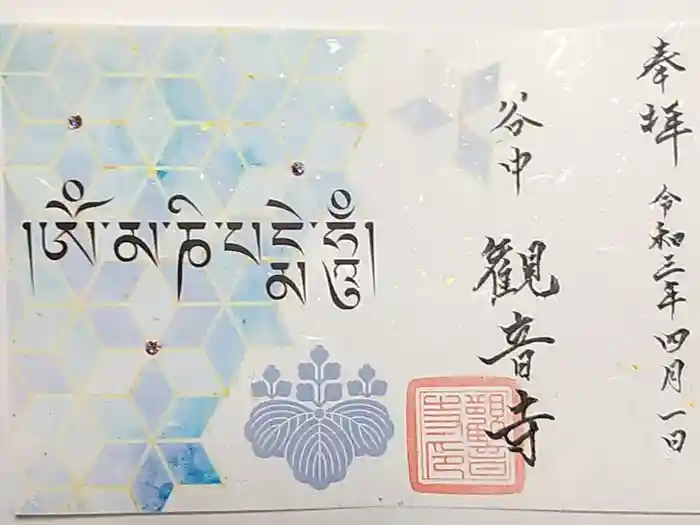 奉拝
令和三年四月一日
谷中
観音寺
།ༀ་མ་ཎི་པདྨེ་ཧཱུྃ།